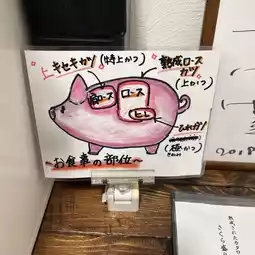 上キセキカツ(特上かつ)
熟成ロース
カツ
(上かつ)
肩ロース
ロース
ヒレ
(極かつ)
〜お食事の部位〜
2018
熟成された
さくら